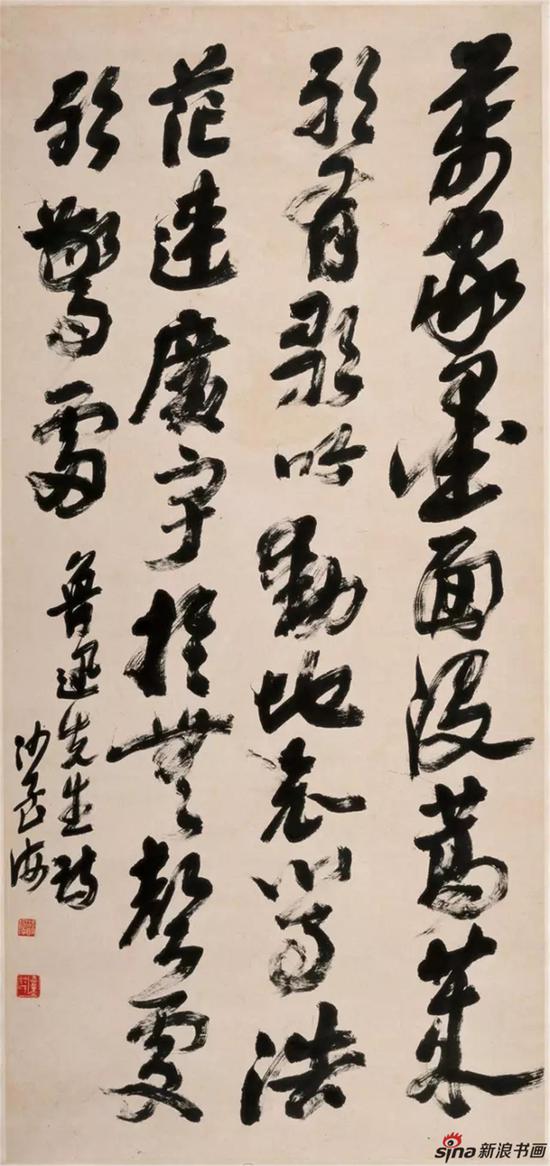 萬家墨面沒蒿萊
敢有歌吟動地哀心事浩
茫連廣宇於無聲處
聽驚雷
魯迅先生詩
沙孟海
sina新浪书画